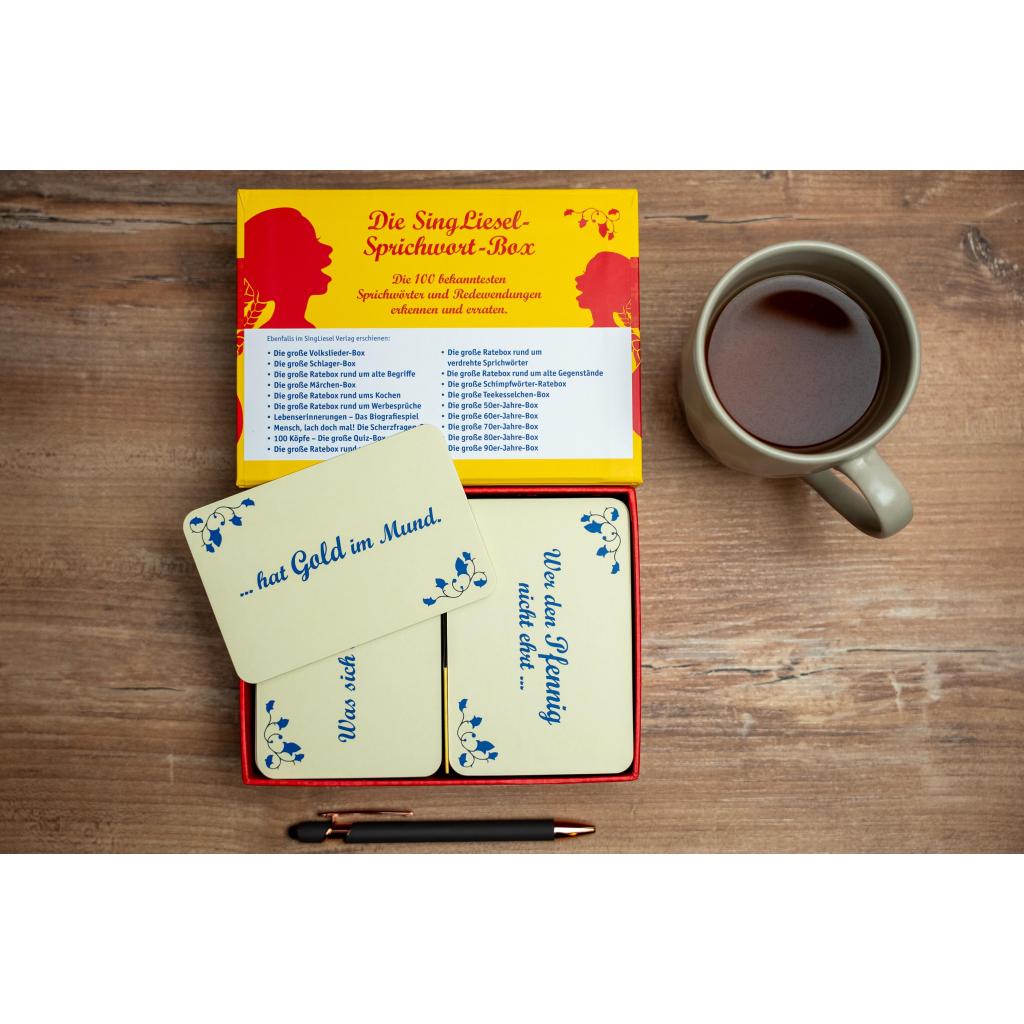 Die SingLiesel-
Sprichwort-Box
Die 100 bekanntesten
Sprichwörter und Redewendungen
erkennen und erraten.
Ebenfalls im SingLiesel Verlag erschienen:
• Die große Volkslieder-Box
• Die große Schlager-Box
• Die große Ratebox rund um alte Begriffe
• Die große Märchen-Box
• Die große Ratebox rund ums Kochen
• Die große Ratebox rund um Werbesprüche
• Lebenserinnerungen – Das Biografiespiel
• Mensch, lach doch mal! Die Scherzfragen
• 100 Köpfe – Die große Quiz-Box
• Die große Ratebox rund
• Die große Ratebox rund um
verdrehte Sprichwörter
• Die große Ratebox rund um alte Gegenstände
• Die große Schimpfwörter-Ratebox
• Die große Teekesselchen-Box
• Die große 50er-Jahre-Box
• Die große 60er-Jahre-Box
• Die große 70er-Jahre-Box
• Die große 80er-Jahre-Box
• Die große 90er-Jahre-Box
... hat Gold im Mund.
Was sich
Wer den Pfennig
nicht ehrt ...